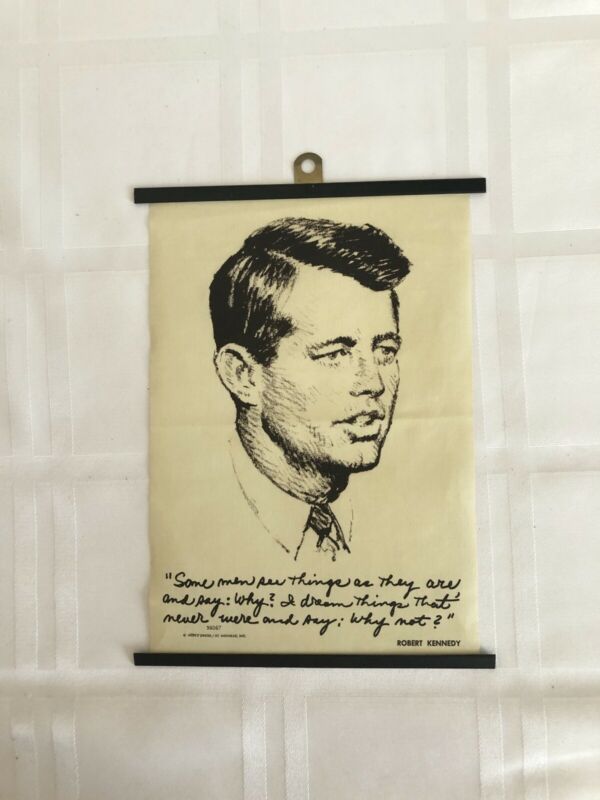 "Some men see things as they are
and say: Why? I dream things that
never were and say: Why not?"
98067
ROBERT KENNEDY